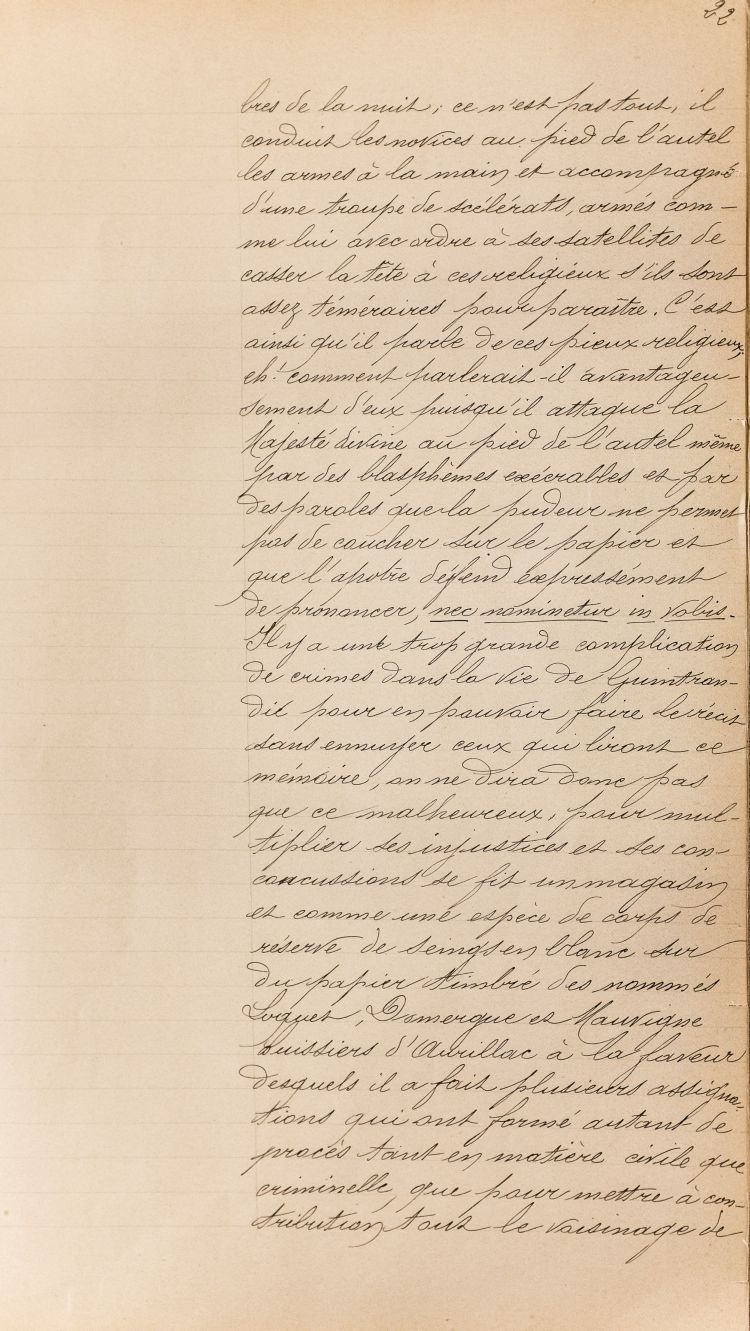 22
bres de la nuit; ce n'est pas tout, il
conduit les novices au pied de l'autel
les armes à la main et accompagné
d'une troupe de scélérats, armés com-
me lui avec ordre à ses satellites de
casser la tête à ces religieux s'ils sont
assez téméraires pour paraître. C'est
ainsi qu'il parle de ces pieux religieux;
eh! comment parlerait-il avantageu-
sement d'eux puisqu'il attaque la
Majesté divine au pied de l'autel même
par des blasphèmes exécrables et par
des paroles que la pudeur ne permet
pas de coucher sur le papier et
que l'apotre défend expressément
de prononcer, nec nominetur in vobis.
Il y a une trop grande complication
de crimes dans la vie de Guintran-
die pour en pouvoir faire le récit
sans ennuyer ceux qui liront ce
mémoire, on ne dira donc pas
que ce malheureux, pour mul-
tiplier ses injustices et ses con-
concussions se fit un magasin
et comme une espèce de corps de
réserve de seings en blanc sur
du papier timbré des nommés
Loquet, Domergue et Mauvigne
huissiers d'Aurillac à la faveur
desquels il a fait plusieurs assigna-
tions qui ont formé autant de
procès tant en matière civile que
criminelle, que pour mettre à con-
tribution tout le voisinage de